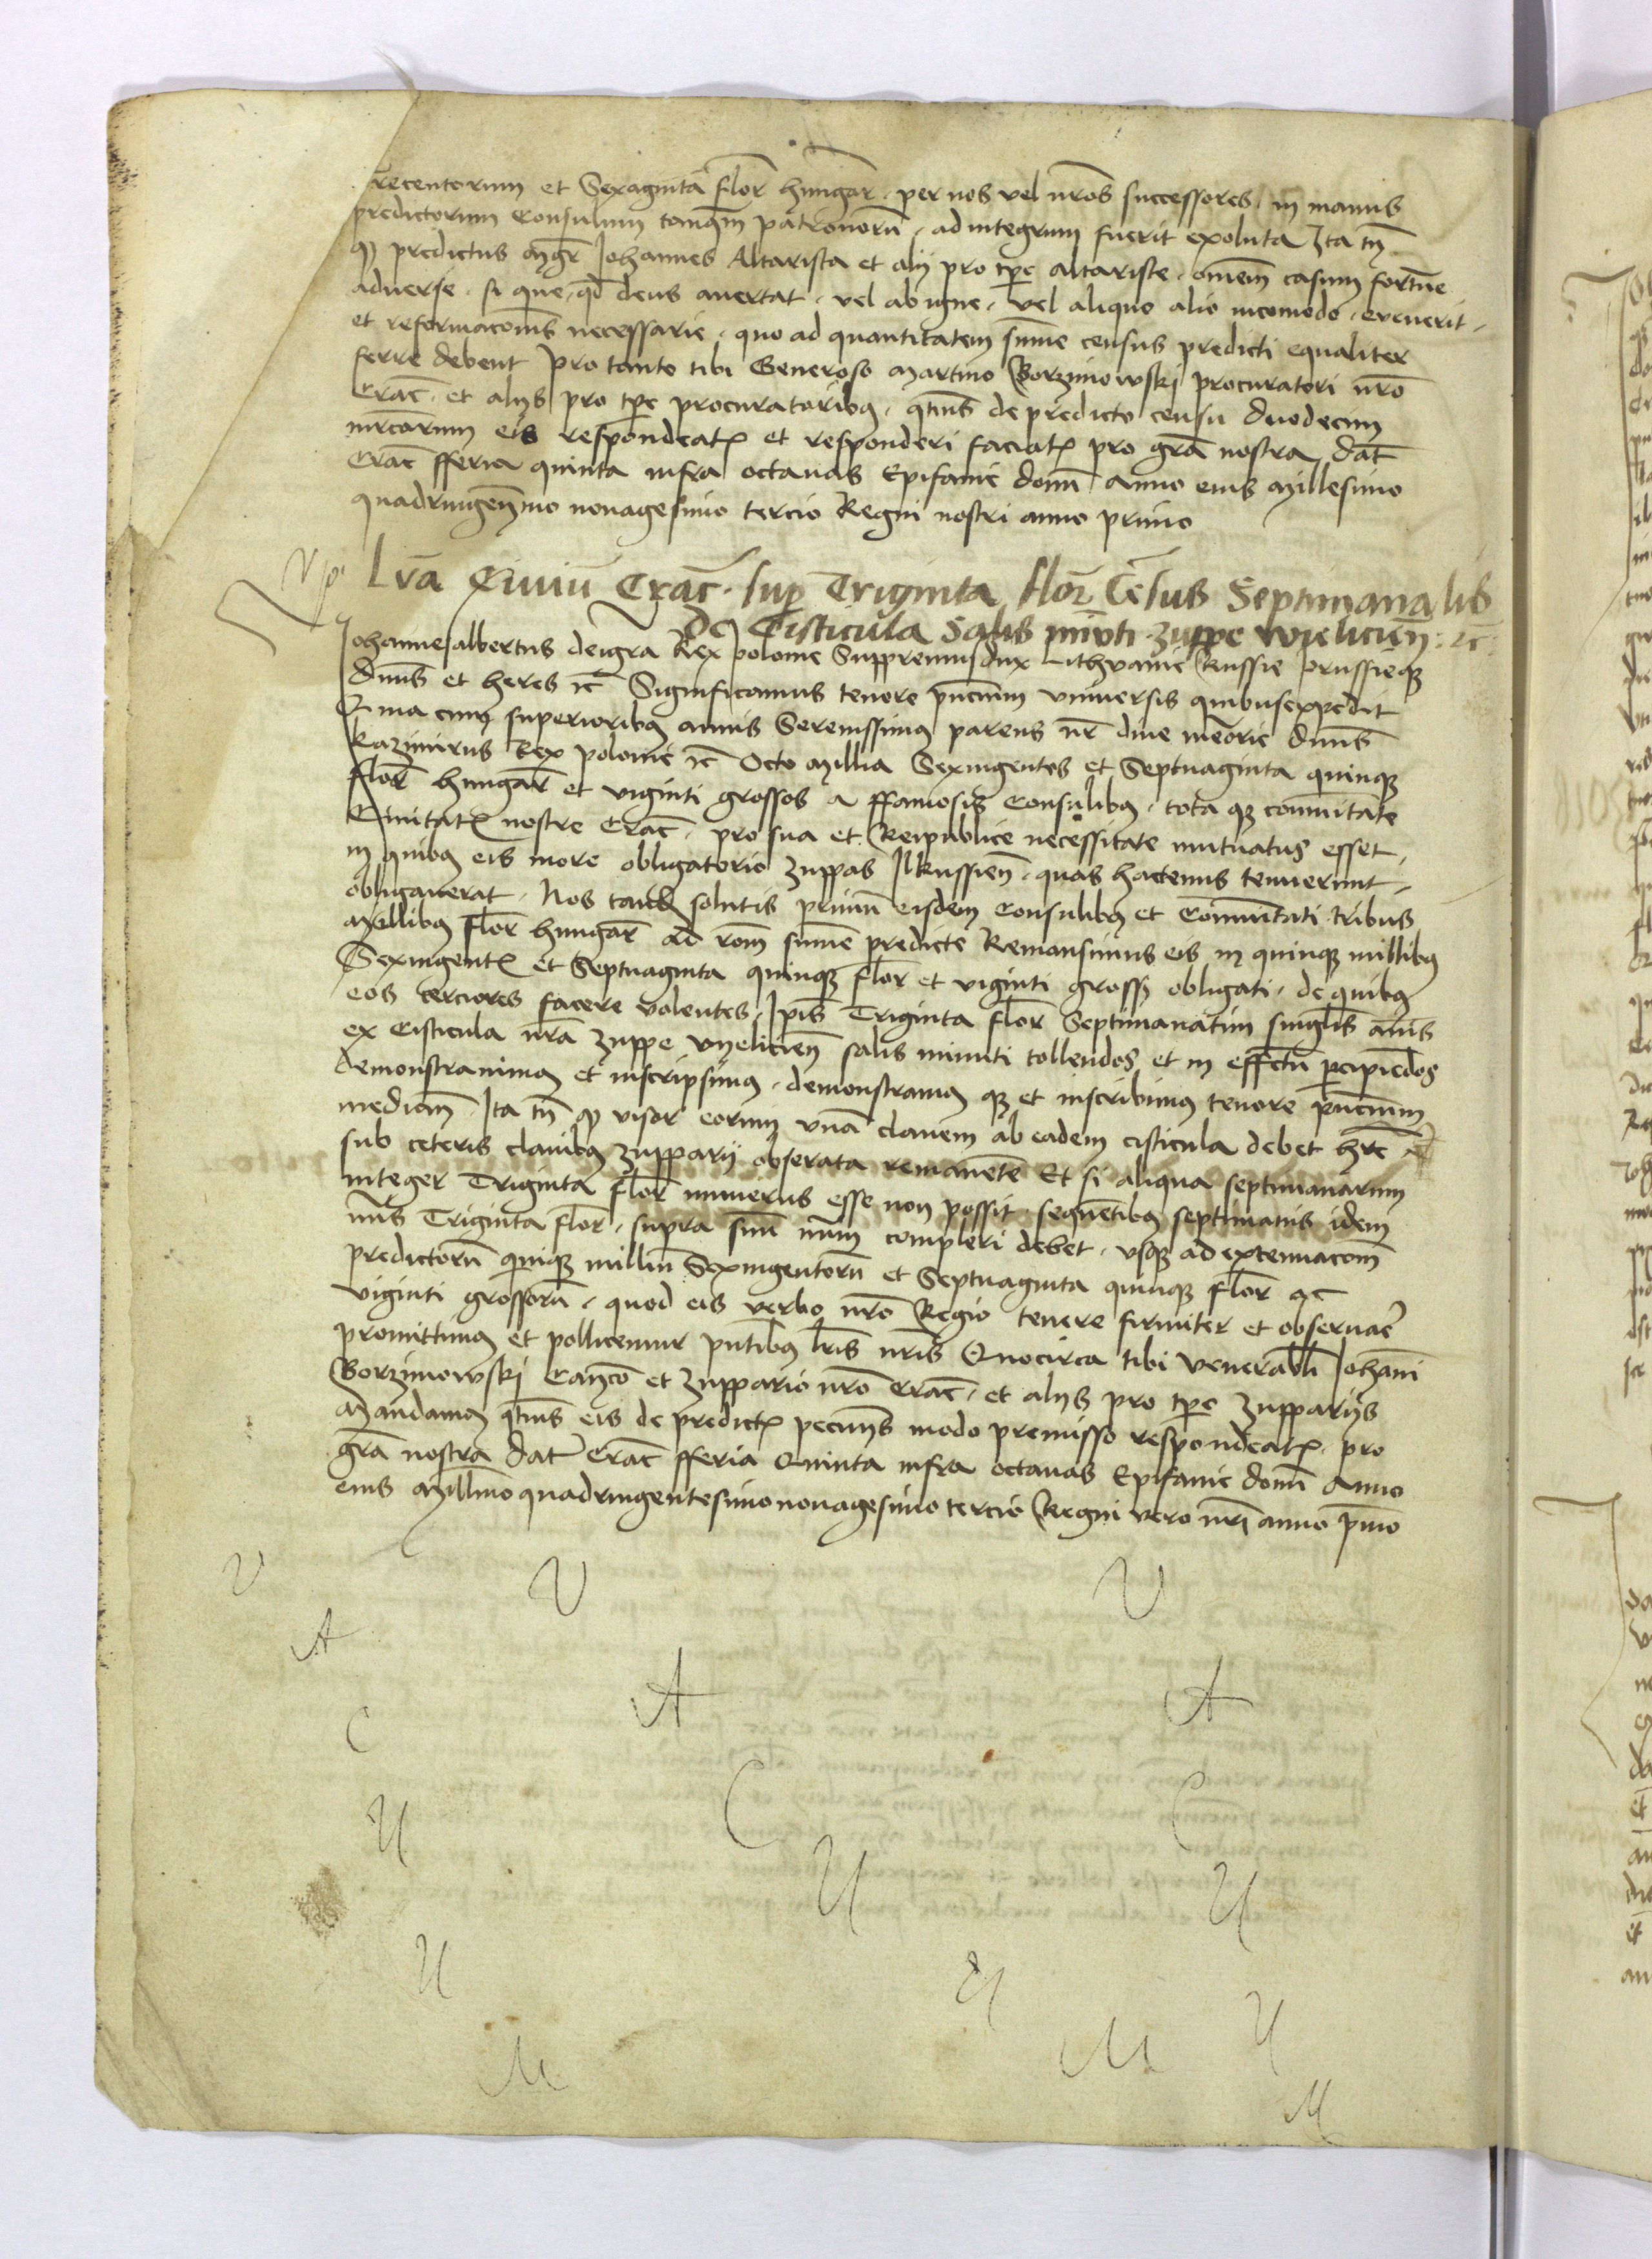 Trecentorum et Sexaginta flor̄ hungar̄ · per nos vel nr̄os successores / in manus
predictorum Consulum tanq̄m patronorū · ad integrum fuerit exoluta Ita tn̄
ꝙ predictus mgr̄ Johannes Altarista et alij pro tp̄e altariste · omnem casum fortune
aduerse · si que · qd̄ deus auertat · vel ab igne · vel aliquo alio incomodo · euenerit ·
et reformacōnis necessarie · quo ad quantitatem sum̄e census predicti equaliter
ferre debent Pro tanto tibi Generoso Martino Gorzinowski procuratori nr̄o
Crac̄ · et alys pro tp̄e procuratoribꝫ · qtn̄s de predicto censu duodecim
mrcarum eis respondeatꝭ et responderi faciatꝭ pro gr̄a nostra Dat̄
Crac̄ fferia quinta infra octauas Epifanie domī Anno eius Millesimo
quadringen̄mo nonagesimo tercio Regni nostri anno primo
Lr̄a Ciuiū Crac̄ · sup̱ Triginta flor̄ Cēsus Septimanalis
De Cisticula Salis minuti zuppe wieliciēn̄ : ꝛc̄ :
Johannes albertus dei gr̄a Rex polonie Suppremus dux Lithvanie Russie prussieqꝫ
dn̄us et heres ꝛc̄ Significamus tenore pn̄cium vniuersis quibus expedit
Quia cum superioribꝫ annis Serenissimꝫ parens nr̄ diue meōrie dn̄us
Kazimirus Rex polonie ꝛc̄ Octo Millia Sexingentos et Septuaginta quinqꝫ
flor̄ hungar̄ et viginti grossos a ffamosis Consulibꝫ · tota qꝫ com̄unitate
Ciuitatꝭ nostre Crac̄ · pro sua et Reipublice necessitate mutuatus esset ·
in quibꝫ eis more obligatorio zuppas Ilkussien̄ · quas hactenus tenuerunt ·
obligauerat · Nos tandē solutis primū eisdem Consulibꝫ et Com̄unitati tribus
Millibꝫ flor̄ hungar̄ ad rōm sum̄e predicte Remansimus eis in quinqꝫ millibꝫ
Sexingentꝭ et Septuaginta quinqꝫ flor̄ et viginti gross̄ obligati · de quibꝫ
eos cerciores facere volentes · Ip̄is Triginta flor̄ Septimanatim singlis̄ annis
ex Cisticula nr̄a zuppe vyelicien̄ salis minuti tollendos et in effectū p̱cipiēdos
demonstrauimꝫ et inscripsimꝫ · demonstramꝫ qꝫ et inscribimꝫ tenore pn̄cium
mediam̄ · Ita tn̄ ꝙ visor eorum vnā clauem ab eadem cisticula debet hr̄e
sub ceteris clauibꝫ zupparij obserata remanētē Et si aliqua septimanarum
integer Triginta flor̄ numerus esse non possit · sequētibꝫ septimanis idem
nūs Triginta flor̄ · supra suū nūm compleri debet · vsqꝫ ad extenuacōm
predictorū quinqꝫ milliū Sexingentorū et Septuaginta quinqꝫ flor̄ ac
viginti grossorū · quod eis verbo nr̄o Regio tenere firmiter et obseruar̄e
promittimꝫ et pollicemur pn̄tibꝫ lr̄is nr̄is Quocirca tibi Venerabl̄i Johāni
Gorzinowski Can̄co et zuppario nr̄o Crac̄ · et alys pro tp̄e zupparijs
Mandamꝫ qtn̄s eis de predictꝭ pecunys modo premisso respondeatꝭ · pro
gr̄a nostra Dat̄ Crac̄ fferia Quinta infra octauas Epifanie domī Anno
eius Millīmo quadringentesimo nonagesimo tercio Regni vero nr̄i anno p̄mo
V V V
A A A
C C C
U U U
U U U
M M M